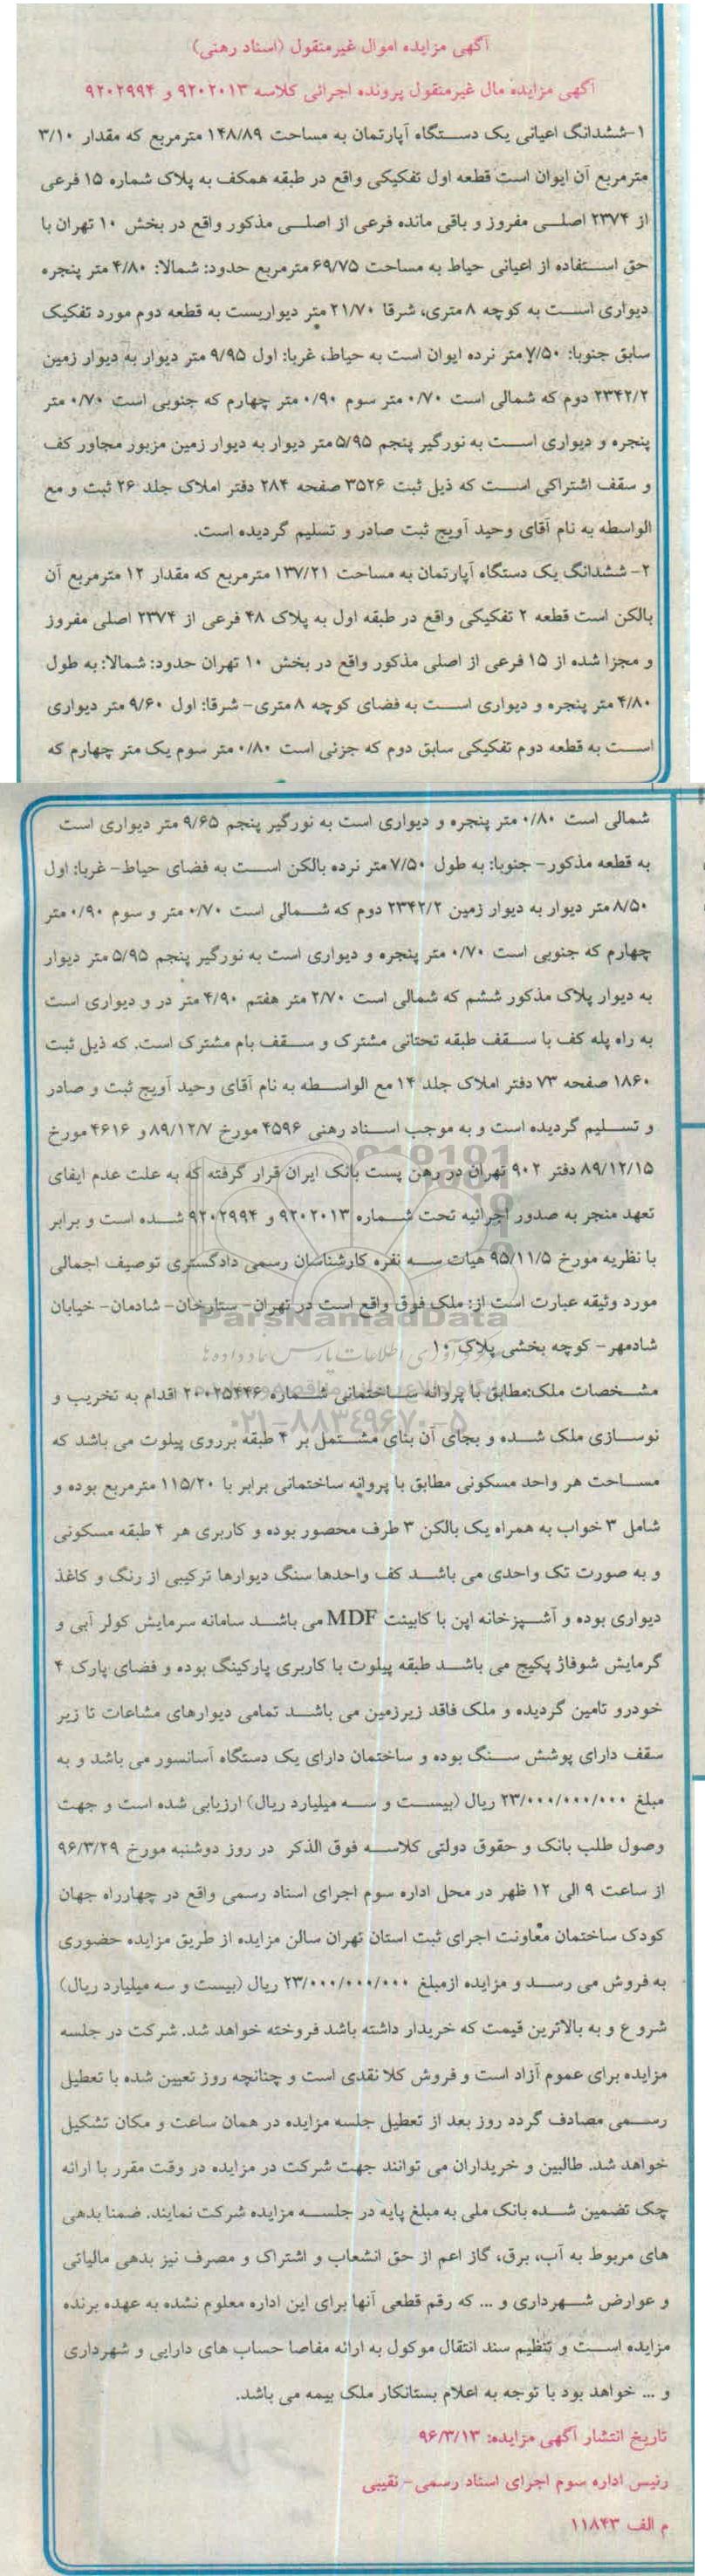 آگهی مزایده اموال غیرمنقول (اسناد رهنی)
آگهی مزایده مال غیرمنقول پرونده اجرائی کلاسه ۹۲۰۲۰۱۳ و ۹۲۰۲۹۹۴
۱-ششدانگ اعیانی یک دستگاه آپارتمان به مساحت ۱۴۸/۸۹ مترمربع که مقدار ۳/۱۰
مترمربع آن ایوان است قطعه اول تفکیکی واقع در طبقه همکف به پلاک شماره ۱۵ فرعی
از ۲۳۷۴ اصلی مفروز و باقی مانده فرعی از اصلی مذکور واقع در بخش ۱۰ تهران با
حق استفاده از اعیانی حیاط به مساحت ۶۹/۷۵ مترمربع حدود: شمالا: ۴/۸۰ متر پنجره
دیواری است به کوچه ۸ متری، شرقا ۲۱/۷۰ متر دیواریست به قطعه دوم مورد تفکیک
سابق جنوبا: ۷/۵۰ متر نرده ایوان است به حیاط، غربا: اول ۹/۹۵ متر دیوار به دیوار زمین
۲۳۴۲/۲ دوم که شمالی است ۰/۷۰ متر سوم ۰/۹۰ متر چهارم که جنوبی است ۰/۷۰ متر
پنجره و دیواری است به نورگیر پنجم ۵/۹۵ متر دیوار به دیوار زمین مزبور مجاور کف
و سقف اشتراکی است که ذیل ثبت ۳۵۲۶ صفحه ۲۸۴ دفتر املاک جلد ۲۶ ثبت و مع
الواسطه به نام آقای وحید آویج ثبت صادر و تسلیم گردیده است.
۲- ششدانگ یک دستگاه آپارتمان به مساحت ۱۳۷/۲۱ مترمربع که مقدار ۱۲ مترمربع آن
بالکن است قطعه ۲ تفکیکی واقع در طبقه اول به پلاک ۴۸ فرعی از ۲۳۷۴ اصلی مفروز
و مجزا شده از ۱۵ فرعی از اصلی مذکور واقع در بخش ۱۰ تهران حدود: شمالا: به طول
۴/۸۰ متر پنجره و دیواری است به فضای کوچه ۸ متری- شرقا: اول ۹/۶۰ متر دیواری
است به قطعه دوم تفکیکی سابق دوم که جزئی است ۰/۸۰ متر سوم یک متر چهارم که
شمالی است ۰/۸۰ متر پنجره و دیواری است به نورگیر پنجم ۹/۶۵ متر دیواری است
به قطعه مذکور- جنوبا: به طول ۷/۵۰ متر نرده بالکن است به فضای حیاط- غربا: اول
۸/۵۰ متر دیوار به دیوار زمین ۲۳۴۲/۲ دوم که شمالی است ۰/۷۰ متر و سوم ۰/۹۰ متر
چهارم که جنوبی است ۰/۷۰ متر پنجره و دیواری است به نورگیر پنجم ۵/۹۵ متر دیوار
به دیوار پلاک مذکور ششم که شمالی است ۲/۷۰ متر هفتم ۴/۹۰ متر در و دیواری است
به راه پله کف با سقف طبقه تحتانی مشترک و سقف بام مشترک است. که ذیل ثبت
۱۸۶۰ صفحه ۷۳ دفتر املاک جلد ۱۴ مع الواسطه به نام آقای وحید آویج ثبت و صادر
و تسلیم گردیده است و به موجب اسناد رهنی ۴۵۹۶ مورخ ۸۹/۱۲/۷ و ۴۶۱۶ مورخ
۸۹/۱۲/۱۵ دفتر ۹۰۲ تهران در رهن پست بانک ایران قرار گرفته که به علت عدم ایفای
تعهد منجر به صدور اجرائیه تحت شماره ۹۲۰۲۰۱۳ و ۹۲۰۲۹۹۴ شده است و برابر
با نظریه مورخ ۹۵/۱۱/۵ هیات سه نفره کارشناسان رسمی دادگستری توصیف اجمالی
مورد وثیقه عبارت است از: ملک فوق واقع است در تهران- ستارخان- شادمان- خیابان
ParsNamadData
شادمهر- کوچه بخشی پلاک ۱۰
مشخصات ملک:مطابق با پروانه ساختمانی شماره ۲۰۰۲۵۴۴۶ اقدام به تخریب و
۰۲۱-۸۸۳۴۹۶۷۰-۵
نوسازی ملک شده و بجای آن بنای مشتمل بر ۴ طبقه برروی پیلوت می باشد که
مساحت هر واحد مسکونی مطابق با پروانه ساختمانی برابر با ۱۱۵/۲۰ مترمربع بوده و
شامل ۳ خواب به همراه یک بالکن ۳ طرف محصور بوده و کاربری هر ۴ طبقه مسکونی
و به صورت تک واحدی می باشد کف واحدها سنگ دیوارها ترکیبی از رنگ و کاغذ
دیواری بوده و آشپزخانه اپن با کابینت MDF می باشد سامانه سرمایش کولر آبی و
گرمایش شوفاژ پکیج می باشد طبقه پیلوت با کاربری پارکینگ بوده و فضای پارک ۴
خودرو تامین گردیده و ملک فاقد زیرزمین می باشد تمامی دیوارهای مشاعات تا زیر
سقف دارای پوشش سنگ بوده و ساختمان دارای یک دستگاه آسانسور می باشد و به
مبلغ ۲۳/۰۰۰/۰۰۰/۰۰۰ ریال (بیست و سه میلیارد ریال) ارزیابی شده است و جهت
وصول طلب بانک و حقوق دولتی کلاسه فوق الذکر در روز دوشنبه مورخ ۹۶/۳/۲۹
از ساعت ۹ الی ۱۲ ظهر در محل اداره سوم اجرای اسناد رسمی واقع در چهارراه جهان
کودک ساختمان معاونت اجرای ثبت استان تهران سالن مزایده از طریق مزایده حضوری
به فروش می رسد و مزایده ازمبلغ ۲۳/۰۰۰/۰۰۰/۰۰۰ ریال (بیست و سه میلیارد ریال)
شروع و به بالاترین قیمت که خریدار داشته باشد فروخته خواهد شد. شرکت در جلسه
مزایده برای عموم آزاد است و فروش کلا نقدی است و چنانچه روز تعیین شده با تعطیل
رسمی مصادف گردد روز بعد از تعطیل جلسه مزایده در همان ساعت و مکان تشکیل
خواهد شد. طالبین و خریداران می توانند جهت شرکت در مزایده در وقت مقرر با ارائه
چک تضمین شده بانک ملی به مبلغ پایه در جلسه مزایده شرکت نمایند. ضمنا بدهی
های مربوط به آب، برق، گاز اعم از حق انشعاب و اشتراک و مصرف نیز بدهی مالیاتی
و عوارض شهرداری و ... که رقم قطعی آنها برای این اداره معلوم نشده به عهده برنده
مزایده است و تنظیم سند انتقال موکول به ارائه مفاصا حساب های دارایی و شهرداری
و ... خواهد بود با توجه به اعلام بستانکار ملک بیمه می باشد.
تاریخ انتشار آگهی مزایده: ۹۶/۳/۱۳
رئیس اداره سوم اجرای اسناد رسمی- نقیبی
م الف ۱۱۸۴۳